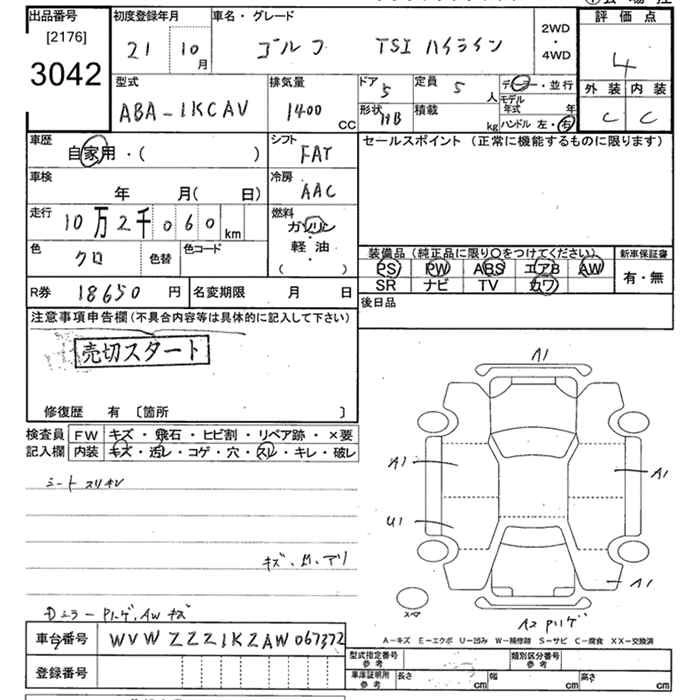 出品番号 初度登録年月 車名・グレード 評価点
[2176]
3042
21 10 月 ゴルフ TSI ハイライン 2WD ・ 4WD 4
型式 排気量 ドア 5 定員 5 人 ディーラー・並行 外装 内装
ABA-1KCAV 1400 CC 形状 HB 積載 kg モデル年式 年 C C
ハンドル 左・右
車歴 シフト セールスポイント (正常に機能するものに限ります)
自家用・( ) FAT
車検 冷房
年 月( 日) AAC
走行 燃料
10万2千060 km ガソリン
軽・油
( )
色 色替 色コード
クロ
装備品 (純正品に限り○をつけてください) 新車保証書
PS PW ABS エアB AW 有・無
SR ナビ TV カワ
R券 18650 円 名変期限 月 日 後日品
注意事項申告欄(不具合内容等は具体的に記入して下さい)
売切スタート
修復歴 有 〔箇所 〕
検査員 FW キズ・飛石・ヒビ割・リペア跡・×要
記入欄 内装 キズ・汚レ・コゲ・穴・スレ・キレ・破レ
シート スリキレ
Dミラー Pハゲ、AW キズ
A1
A1
A1
U1
A1
スペア
A2 Pハゲ
A-キズ E-エクボ U-凹み W-補修跡 S-サビ C-腐食 XX-交換済
車台番号 WVWZZZ1KZAW067372
登録番号
型式指定番号 参考 類別区分番号 参考
車庫証明用 参考 長さ cm 幅 cm 高さ cm